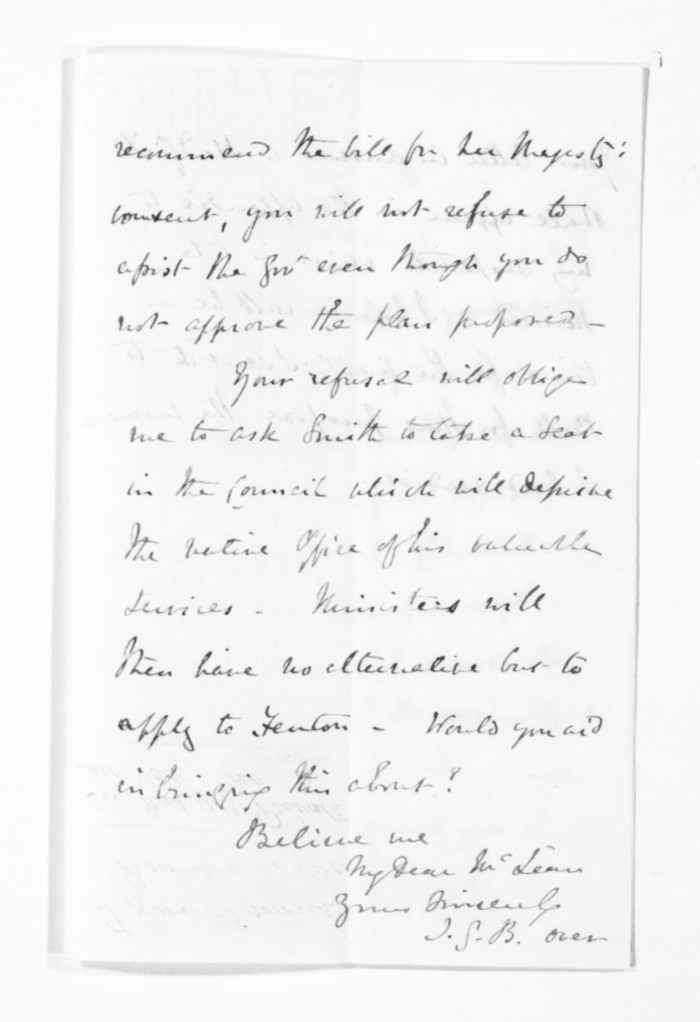 recommend the bill for her Majesty's
consent, you will not refuse to
assist the Govt even though you do
not approve the plan proposed -
Your refusal will oblige
me to ask Smith to take a seat
in the Council which will deprive
the native Office of his valuable
services - Ministers will
then have no alternative but to
apply to Fenton - Would you aid
in bringing this about?
Believe me
My Dear McLean
Yours Sincerely
T.G.B. over